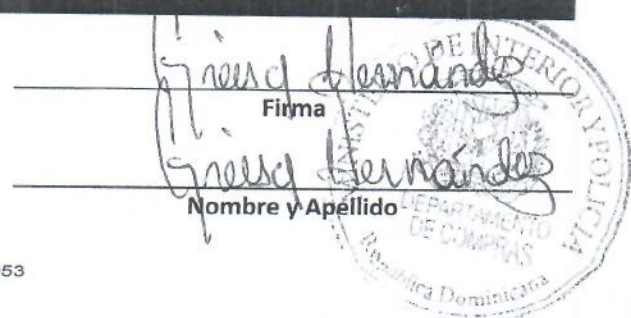 Hernández
Firma
Hernández
Nombre y Apellido
MINISTERIO DE INTERIOR Y POLICIA
DEPARTAMENTO
DE COMPRAS
República Dominicana
53